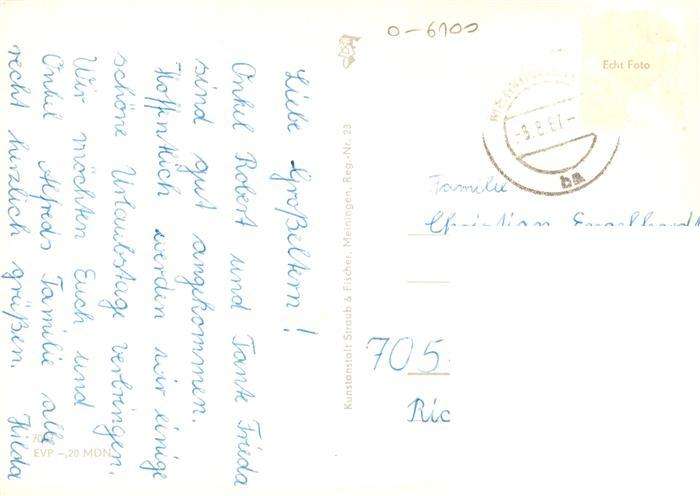 Liebe Großeltern!
Onkel Robert und Tante Frieda
sind gut angekommen.
Hoffentlich werden wir einige
schöne Urlaubstage verbringen.
Wir möchten Euch und
Onkel Alfreds Familie alle
recht herzlich grüßen. Hilda
EVP –,20 MDN
Kunstanstalt Straub & Fischer, Meiningen, Reg.-Nr. 23
0-6100
Echt Foto
-3.8.67.-
ba
Familie
Christian
705
Ric